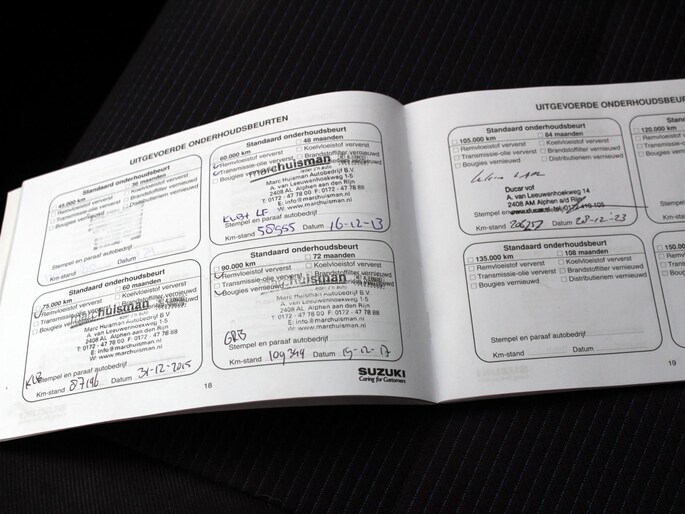 UITGEVOERDE ONDERHOUDSBEURTEN
Standaard onderhoudsbeurt
45.000 km 36 maanden
Remvloeistof ververst Koelvloeistof ververst
Transmissie-olie ververst Brandstoffilter vernieuwd
Bougies vernieuwd
Stempel en paraaf autobedrijf
Km-stand Datum
Standaard onderhoudsbeurt
60.000 km 48 maanden
Remvloeistof ververst Koelvloeistof ververst
Transmissie-olie ververst Brandstoffilter vernieuwd
Bougies vernieuwd
marchuisman
Marc Huisman Autobedrijf B.V.
A. van Leeuwenhoekweg 1-5
2408 AL Alphen aan den Rijn
T: 0172 - 47 78 00 F: 0172 - 47 78 88
E: info@marchuisman.nl
W: www.marchuisman.nl
Stempel en paraaf autobedrijf
Km-stand 58955 Datum 16-12-13
Standaard onderhoudsbeurt
75.000 km 60 maanden
Remvloeistof ververst Koelvloeistof ververst
Transmissie-olie ververst Brandstoffilter vernieuwd
Bougies vernieuwd
marchuisman
Marc Huisman Autobedrijf B.V.
A. van Leeuwenhoekweg 1-5
2408 AL Alphen aan den Rijn
T: 0172 - 47 78 00 F: 0172 - 47 78 88
E: info@marchuisman.nl
W: www.marchuisman.nl
Stempel en paraaf autobedrijf
Km-stand 87196 Datum 31-12-2015
Standaard onderhoudsbeurt
90.000 km 72 maanden
Remvloeistof ververst Koelvloeistof ververst
Transmissie-olie ververst Brandstoffilter vernieuwd
Bougies vernieuwd
marchuisman
Marc Huisman Autobedrijf B.V.
A. van Leeuwenhoekweg 1-5
2408 AL Alphen aan den Rijn
T: 0172 - 47 78 00 F: 0172 - 47 78 88
E: info@marchuisman.nl
W: www.marchuisman.nl
GRB
Stempel en paraaf autobedrijf
Km-stand 109344 Datum 19-12-17
18
SUZUKI
Caring for Customers
UITGEVOERDE ONDERHOUDSBEU
Standaard onderhoudsbeurt
105.000 km 84 maanden
Remvloeistof ververst Koelvloeistof ververst
Transmissie-olie ververst Brandstoffilter vernieuwd
Bougies vernieuwd Distributieriem vernieuwd
Ducar vof
A. van Leeuwenhoekweg 14
2408 AM Alphen a/d Rijn
Stempel en
Km-stand Datum 28-12-23
Standaard onderhoudsbeurt
135.000 km 108 maanden
Remvloeistof ververst Koelvloeistof ververst
Transmissie-olie ververst Brandstoffilter vernieuwd
Bougies vernieuwd Distributieriem vernieuwd
Stempel en paraaf autobedrijf
Km-stand Datum
120.000 km
Remvloeistof
Transmissie-
Bougies
Stempel en
Km-stand
150.000
19